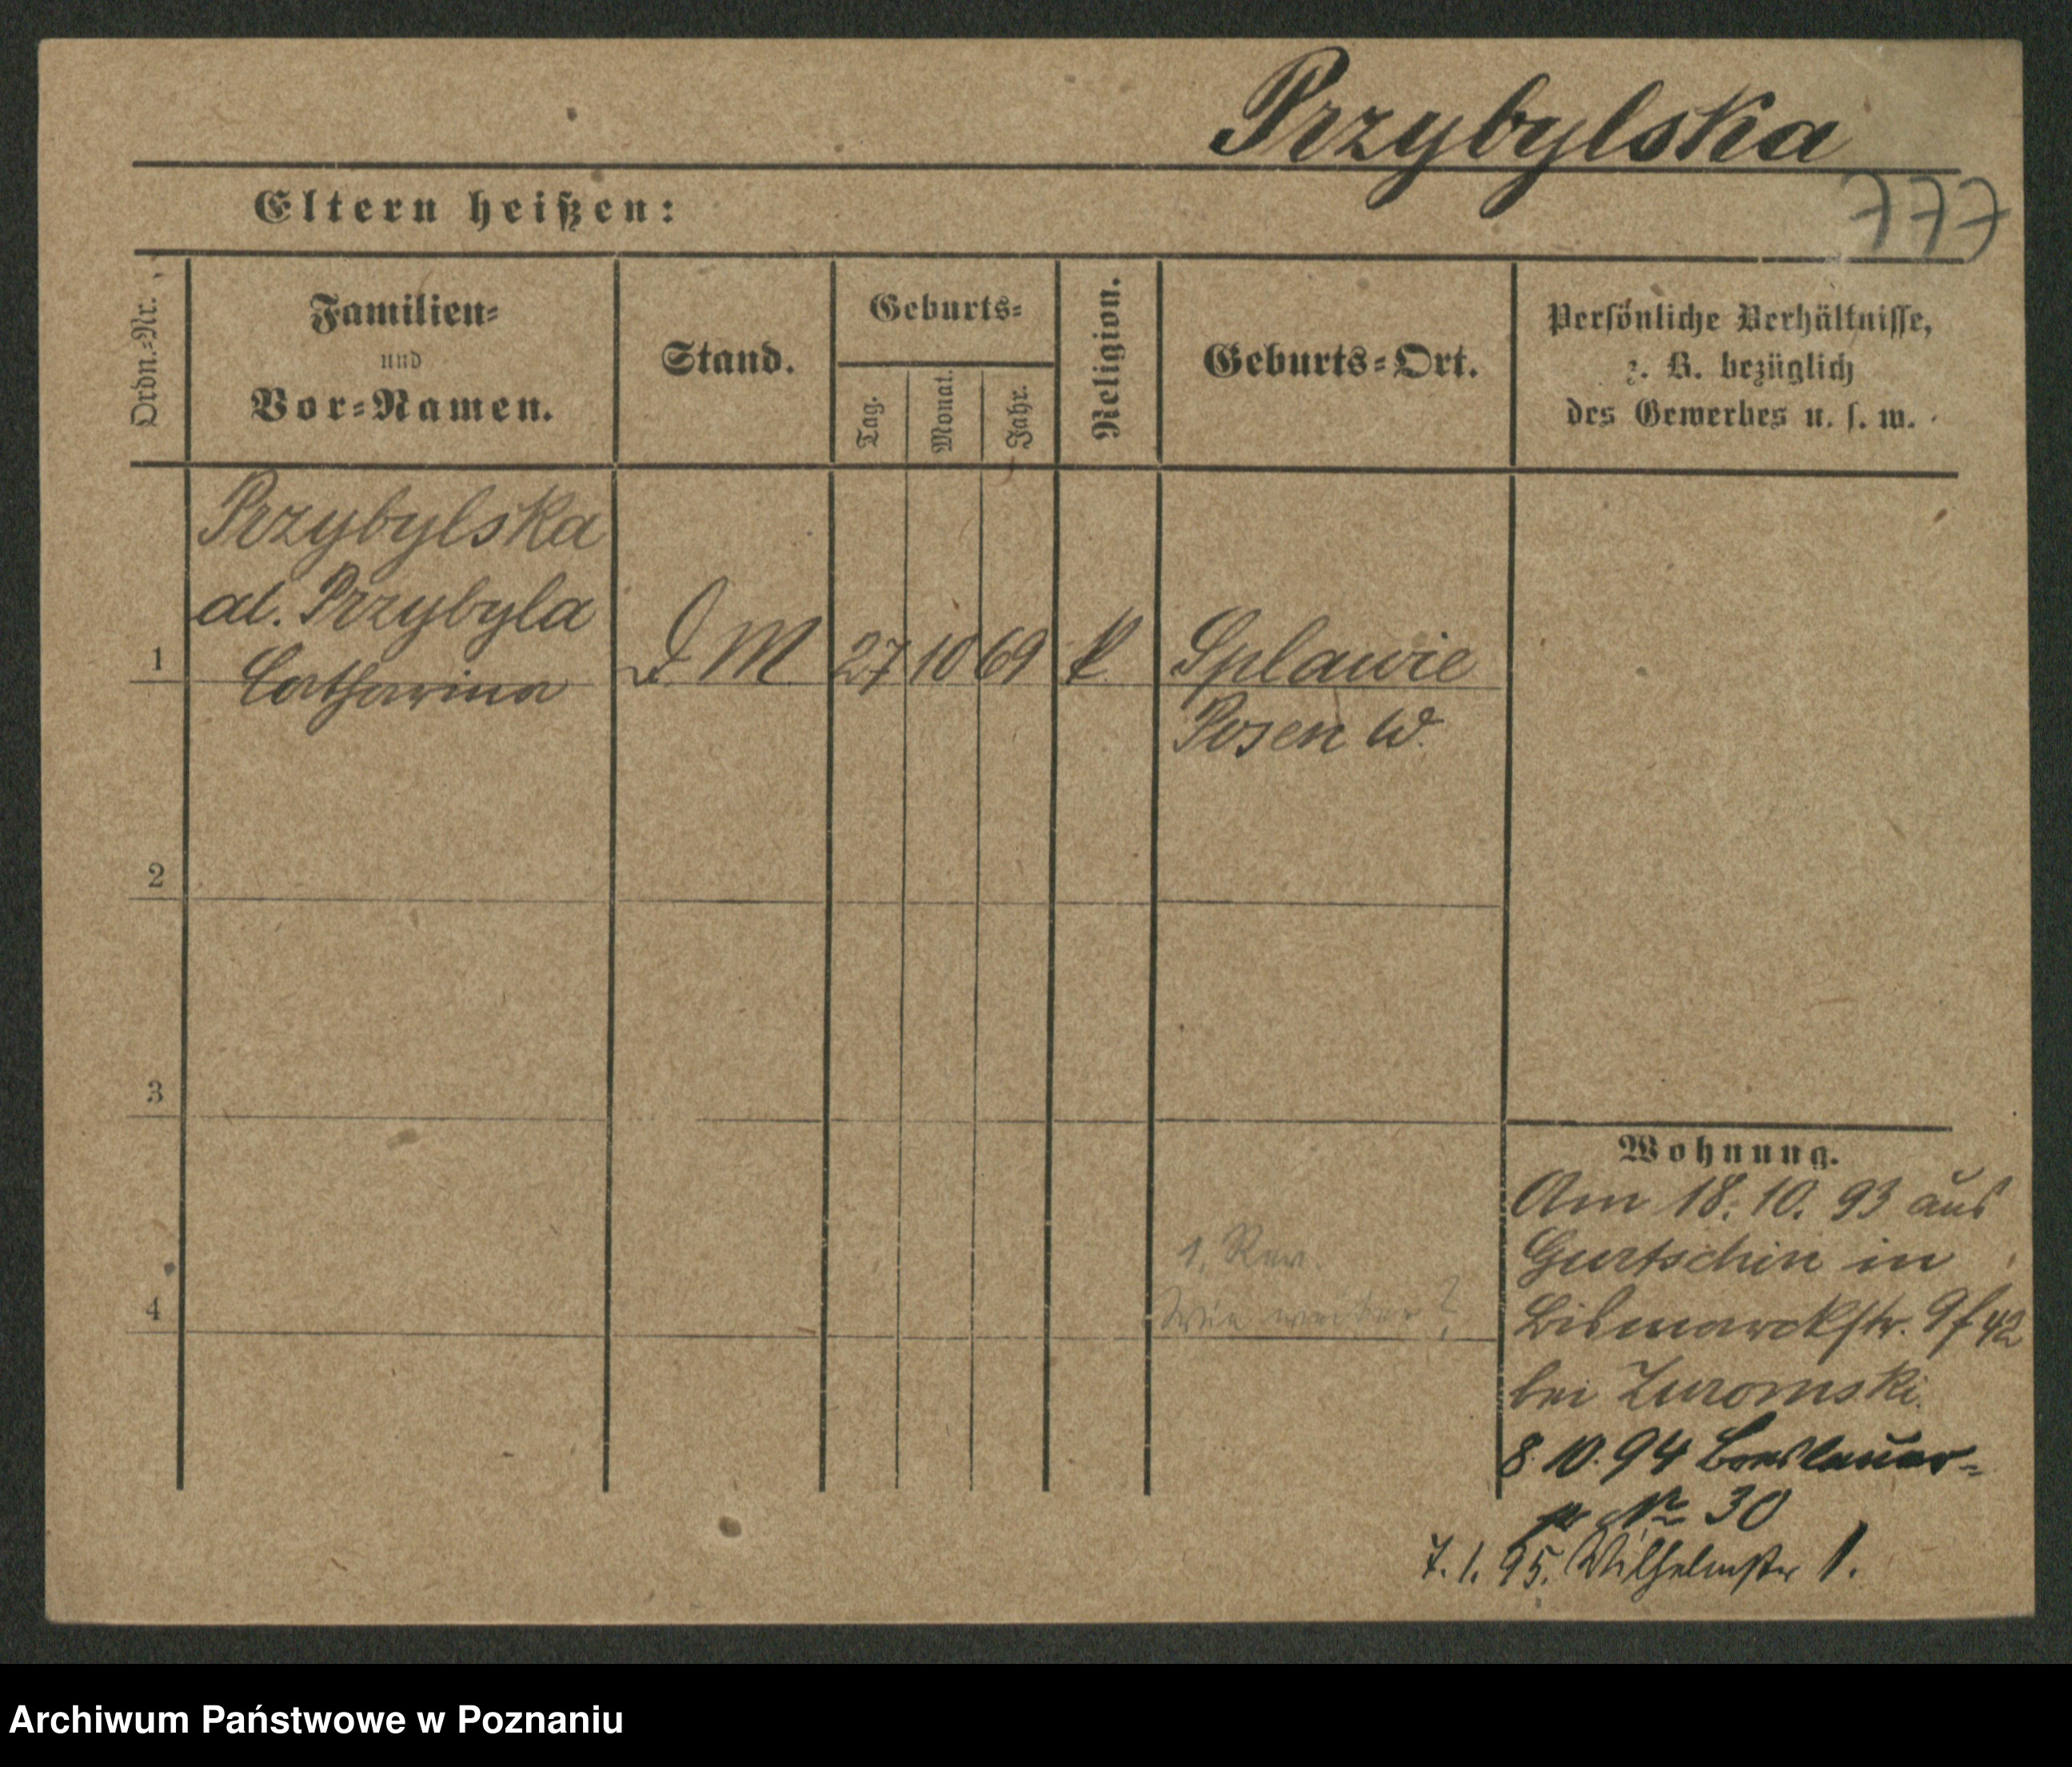 Przybylska
777
Eltern heißen:
Ordn.-Nr.
Familien-
und
Vor-Namen.
Stand.
Geburts-
Tag.
Monat.
Jahr.
Religion.
Geburts-Ort.
Persönliche Verhältnisse,
z. B. bezüglich
des Gewerbes u. s. w.
Przybylska
al. Przybyla
1 Catharina D. M. 27 10 69 k. Splawie
Posen W.
2
3
4
1. Rev.
Wie weiter?
Wohnung.
Am 18. 10. 93 aus
Gurtschin in
Bismarckstr. 9
bei Zuromski.
8. 10. 94 Breslauer-
str No 30
7. 1. 95. Wilhelmstr 1.
Archiwum Państwowe w Poznaniu